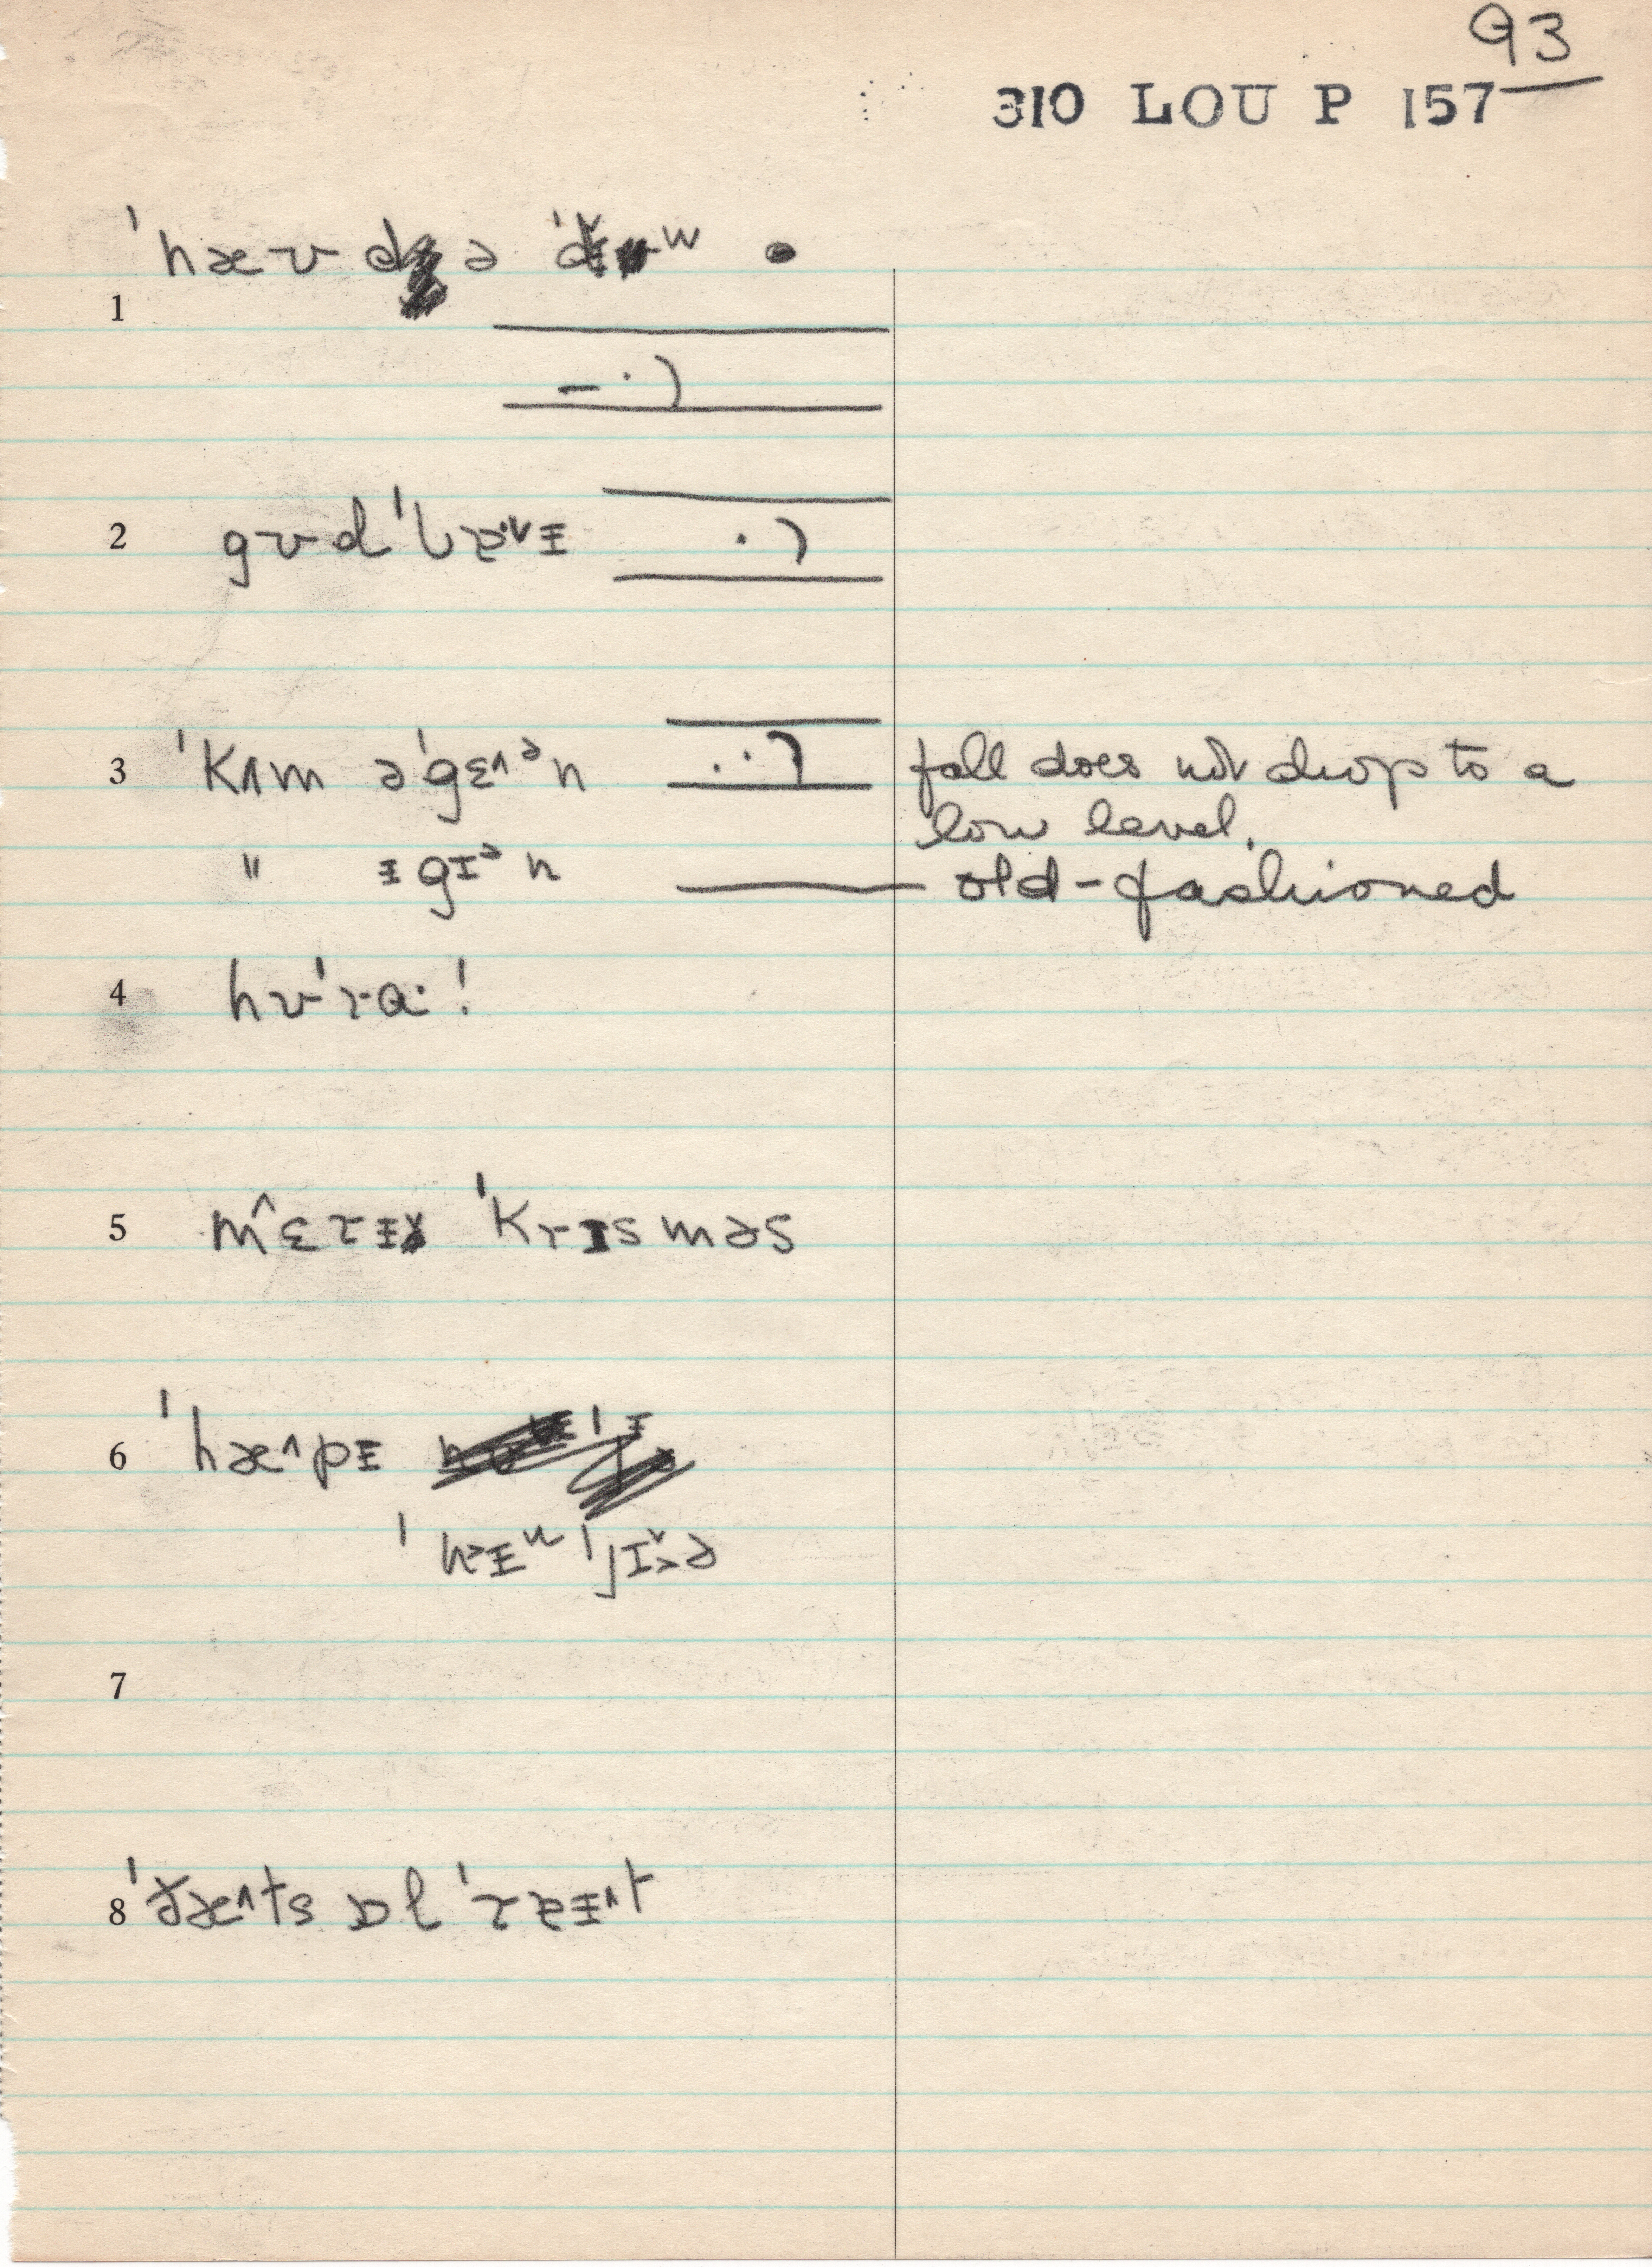 93
310 LOU P 157
ˈhæʊ də ˈdᵻʷ
1
2 gʊd ˈbɐˑᵛᵻ
3 ˈkʌm əˈgɛ^ᵊn fall does not drop to a
low level.
" ᵻgɪᵊn old-fashioned
4 hʊˈrɑˑ!
5 m^ɛrᵻ ˈkrɪsməs
6 ˈhæ^pᵻ
ˈnᵻᵘ ˈjɪᵛə
7
8 ˈðæ^ts ɒl ˈrɐᵻ^t